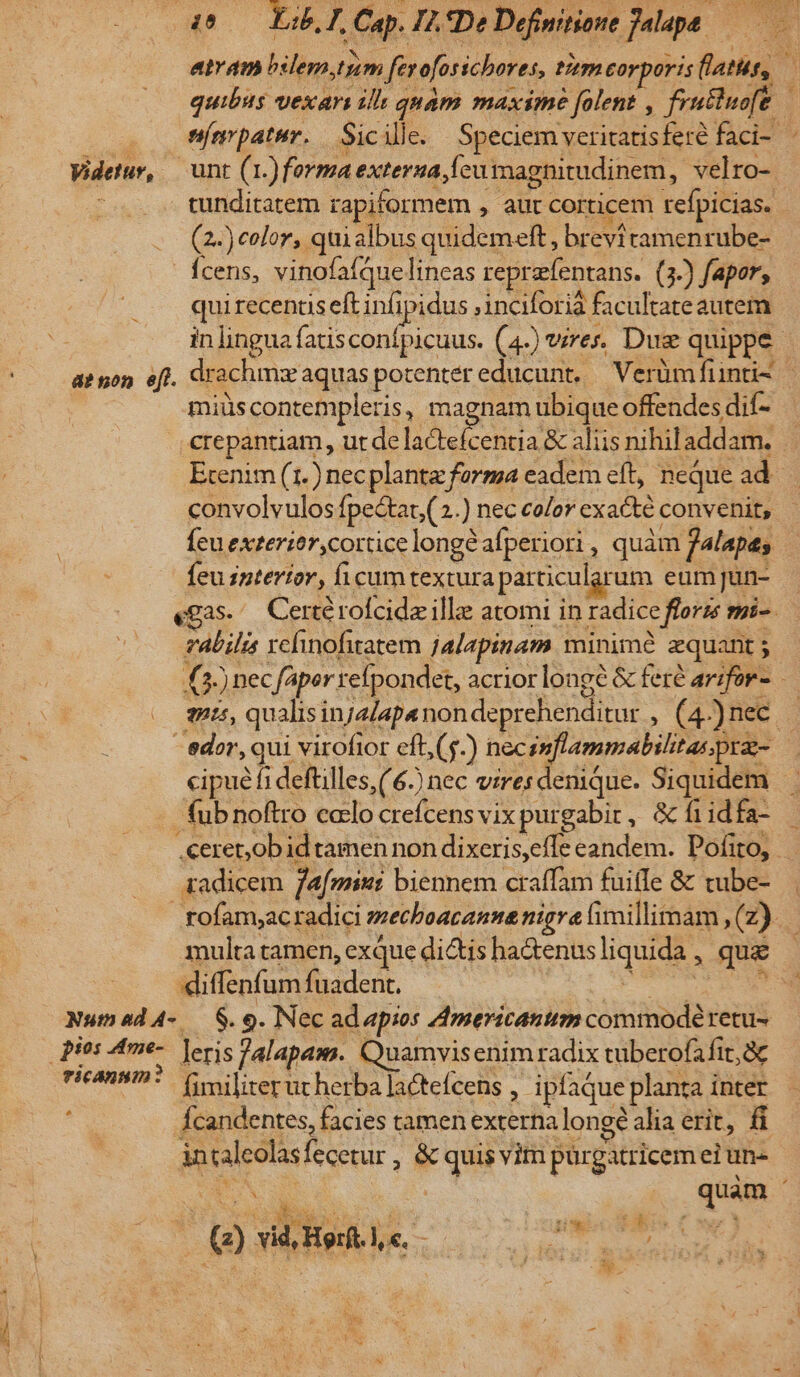 18 Lib. I. Cap. II. De Definitione Jalapæ
atram bilem, tùm ſeroſos ichores, tùm corporis flatus,
quibus vexari illi quàm maximè ſolent, fructuoſè
uſurpatur. Sic ille. Speciem veritatis ferè faci-
Videtur, unt (1.) forma externa, ſeu magnitudinem, vel ro-
tunditatem rapiformem, aut corticem reſpicias.
(2.) color, qui albus quidem eſt, brevî tamen rube-
ſcens, vinoſaſque lineas repræſentans. (3.) ſapor,
qui recentis eſt inſipidus, inciſoriâ facultate autem
in lingua ſatis conſpicuus. (4.) vires. Duæ quippe
at non eſt. drachmæ aquas potenter educunt. Verùm ſi unti-
miùs contempleris, magnam ubique offendes diſ-
crepantiam, ut de lacteſcentia & aliis nihil addam.
Etenim (1.) nec plantæ forma eadem eſt, neque ad
convolvulos ſpectat, (2.) nec color exactè convenit,
ſeu exterior, cortice longè aſperiori, quàm Jalapæ,
ſeu interior, ſi cum textura particularum eum jun-
gas. Certè roſcidæ illæ atomi in radice floris mi-
rabilis reſinoſitatem jalapinam minimè æquant;
(3.) nec ſapor reſpondet, acrior longè & ferè ariſor-
mis, qualis in jalapa non deprehenditur, (4.) nec
odor, qui viroſior eſt, (5.) nec inflammabilitas, præ-
cipuè ſi deſtilles, (6.) nec vires denique. Siquidem
ſub noſtro cœlo creſcens vix purgabit, & ſi id fa-
ceret, ob id tamen non dixeris, eſſe eandem. Poſito,
radicem Jaſmini biennem craſſam fuiſſe & tube-
roſam, ac radici mechoacannæ nigræ ſimillimam, (z)
multa tamen, exque dictis hactenus liquida, quæ
diſſenſum ſuadent.
Num ad A- §. 9. Nec ad apios Americanum commodè retu-
pios Ame- leris Jalapam. Quamvis enim radix tuberoſa ſit, &
ricanum? ſimiliter ut herba lacteſcens, ipſaque planta inter
ſcandentes, facies tamen externa longè alia erit, ſi
in taleolas ſecetur, & quis vim purgatricem ei un-
quàm
(z) vid. Horſt. l. c.